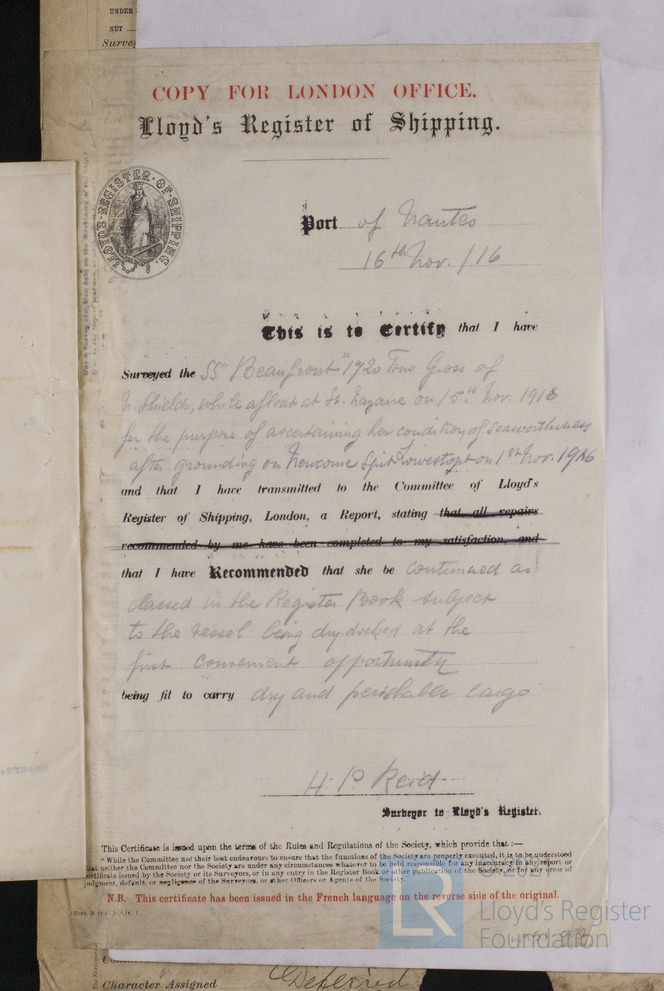 UNDER
NET
Survey
COPY FOR LONDON OFFICE.
Lloyd's Register of Shipping.
LLOYD'S REGISTER OF SHIPPING.
Port of Nantes
16th Nov. /16
This is to Certify that I have
Surveyed the SS "Beaufront" 1720 Tons Gross of
N Shields, while afloat at St. Nazaire on 15th Nov. 1916
for the purpose of ascertaining her condition of seaworthiness
after grounding on Newcome Spit Lowestoft on 1st Nov. 1916
and that I have transmitted to the Committee of Lloyd's
Register of Shipping, London, a Report, stating that all repairs
recommended by me have been completed to my satisfaction, and
that I have Recommended that she be continued as
classed in the Register Book subject
to the vessel being drydocked at the
first convenient opportunity
being fit to carry dry and perishable cargo
H. P. Reid
Surveyor to Lloyd's Register.
This Certificate is issued upon the terms of the Rules and Regulations of the Society, which provide that :—
"While the Committee use their best endeavours to ensure that the functions of the Society are properly executed, it is to be understood
that neither the Committee nor the Society are under any circumstances whatever to be held responsible for any inaccuracy in any report or
certificate issued by the Society or its Surveyors, or in any entry in the Register Book or other publication of the Society, or for any error of
judgment, default, or negligence of the Surveyors, or other Officers or Agents of the Society."
N.B. This certificate has been issued in the French language on the reverse side of the original.
LR
Lloyd's Register
Foundation
Character Assigned
Deferred